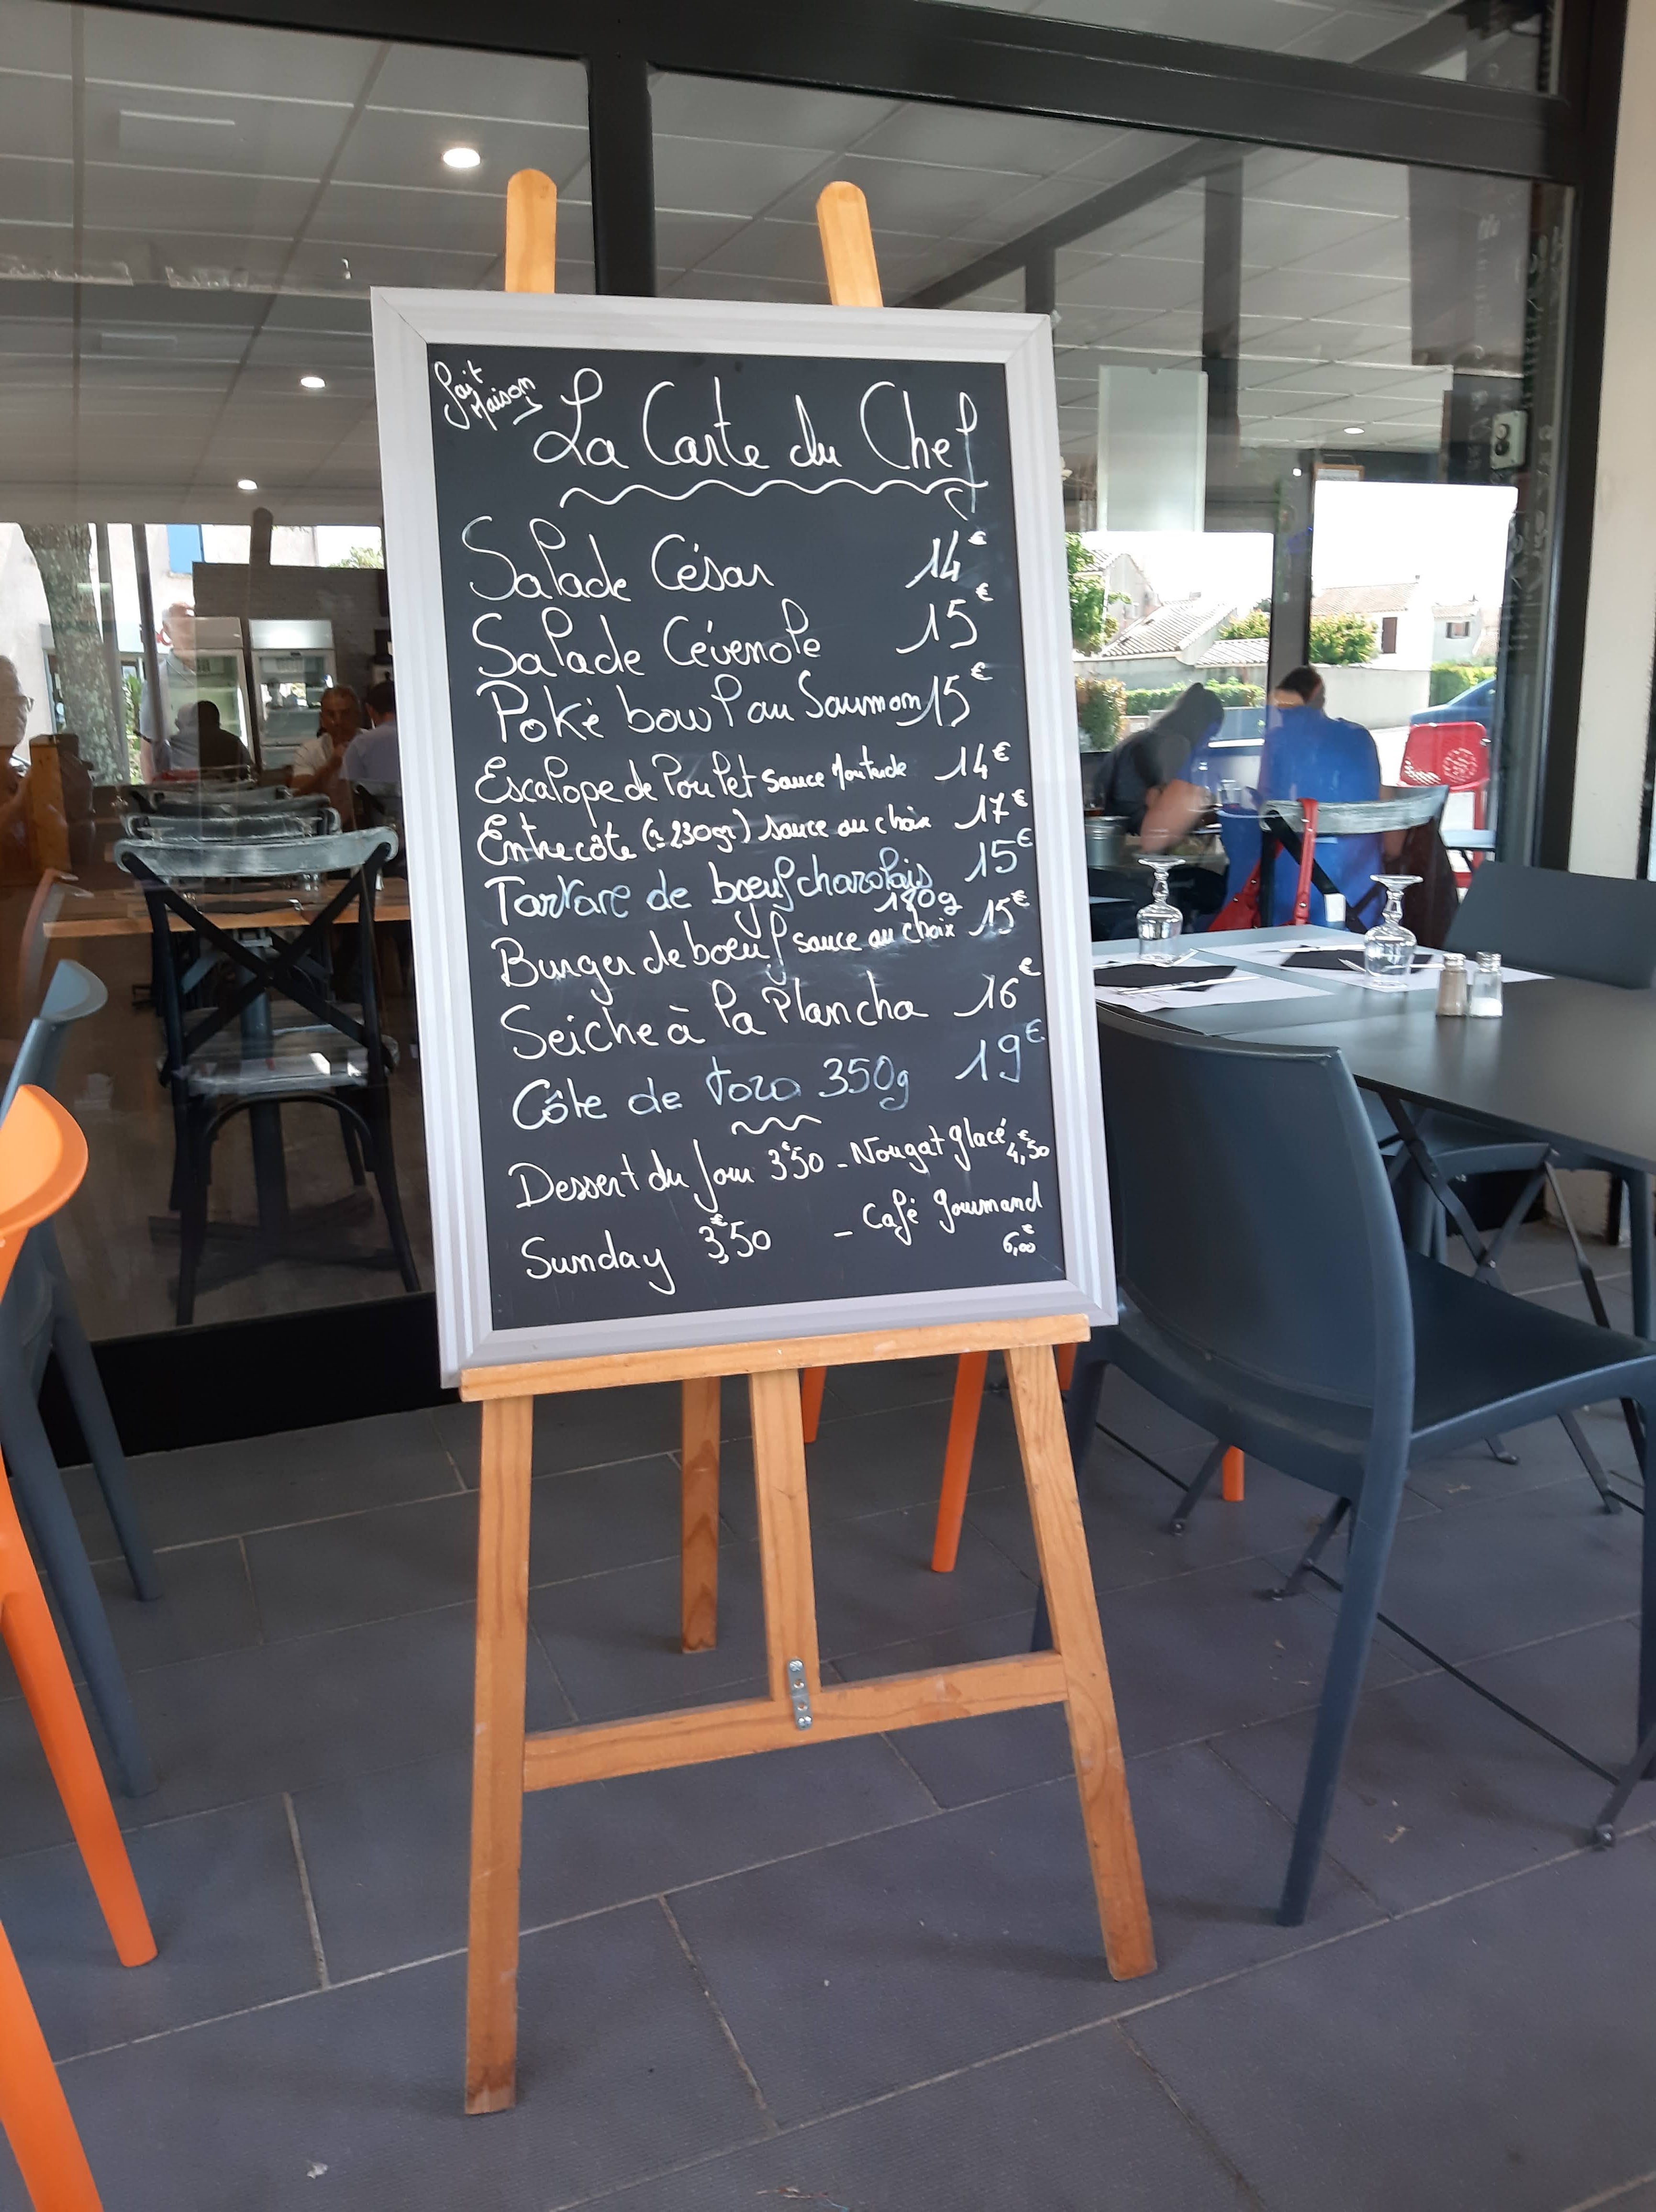 fait
Maison
La Carte du Chef
Salade César 14€
Salade Cévenole 15€
Poké bowl au Saumon 15€
Escalope de Poulet sauce Moutarde 14€
Entrecôte (≈230gr) sauce au choix 17€
Tartare de bœuf charolais 15€
180g
Burger de boeuf sauce au choix 15€
Seiche à la Plancha 16€
Côte de toro 350g 19€
Dessert du Jour 3€50 - Nougat glacé 4,€50
Sunday 3,€50 - Café gourmand
6,€00